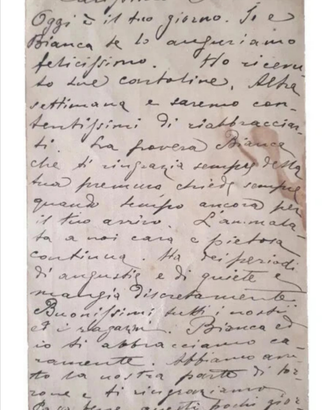 Oggi è il tuo giorno. Io e
Bianca te lo auguriamo
felicissimo. Ho ricevu
to tue cartoline. Altra
settimana e saremo con-
tentissimi di riabbracciar
ti. La povera Bianca
che ti ringrazia sempre della
tua premura chiede sempre
quando tempo ancora per
il tuo arrivo. L'ammala
ta a noi cara e pietosa
continua. Ha dei periodi
di angustie e di quiete e
mangia discretamente.
Buonissimi tutti i nostri
ed i ragazzi. Bianca ed
io ti abbracciamo ca-
ramente. Abbiamo avu
to la nostra parte di tor
rone e ti ringraziamo
questi pochi gior